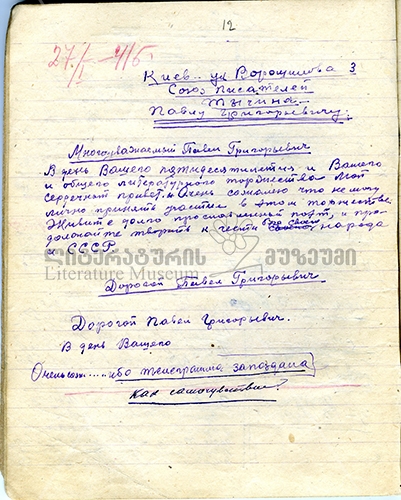 12
27/I-41г.
Киев. ул Ворошилова 3
Союз писателей
Тычина
Павлу Григорьевичу.
Многоуважаемый Павел Григорьевич
В день Вашего пятидесятилетия и Вашего
и общего литературного торжества мой
сердечный привет. Очень сожалею что не могу
лично принять участие в этом торжестве.
Живите долго прославленный поэт, и про-
должайте творить в честь народа
и СССР.
ლიტერატურის მუზეუმი
Literature Museum
Дорогой Павел Григорьевич
Дорогой Павел Григорьевич.
В день Вашего
ибо телеграмма запоздала
Как самочувствие?